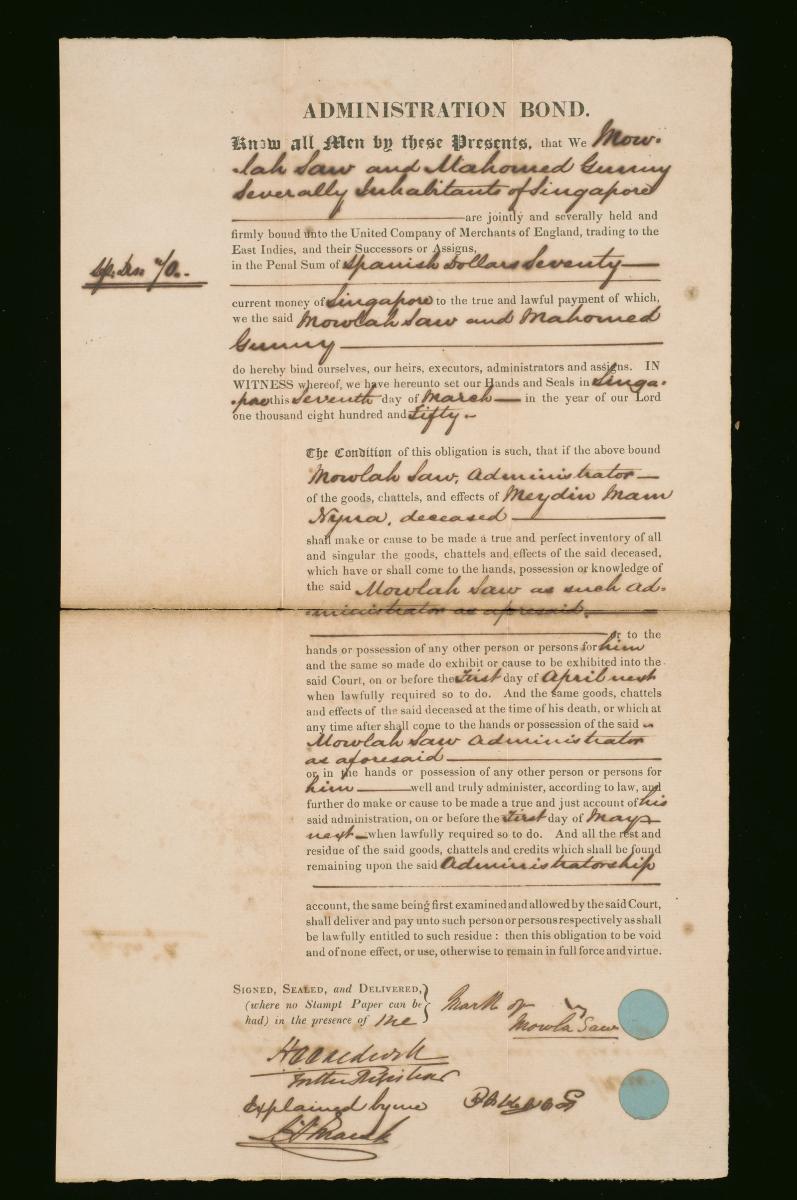 ADMINISTRATION BOND.
Know all Men by these Presents, that We Mow-
-lah Saw and Mahomed Gunny
Severally Inhabitants of Singapore
are jointly and severally held and
firmly bound unto the United Company of Merchants of England, trading to the
East Indies, and their Successors or Assigns,
in the Penal Sum of Spanish Dollars Seventy
70
current money of Singapore to the true and lawful payment of which,
we the said Mowlah Saw and Mahomed
Gunny
do hereby bind ourselves, our heirs, executors, administrators and assigns. IN
WITNESS whereof, we have hereunto set our Hands and Seals in Singa-
-pore this Seventh day of March in the year of our Lord
one thousand eight hundred and Fifty.
The Condition of this obligation is such, that if the above bound
Mowlah Saw, Administrator
of the goods, chattels, and effects of Meydin Mam
Nyna, deceased
shall make or cause to be made a true and perfect inventory of all
and singular the goods, chattels and effects of the said deceased,
which have or shall come to the hands, possession or knowledge of
the said Mowlah Saw as such Ad-
-ministrator as aforesaid,
or to the
hands or possession of any other person or persons for him
and the same so made do exhibit or cause to be exhibited into the
said Court, on or before the First day of April next
when lawfully required so to do. And the same goods, chattels
and effects of the said deceased at the time of his death, or which at
any time after shall come to the hands or possession of the said
Mowlah Saw Administrator
as aforesaid
or in the hands or possession of any other person or persons for
him well and truly administer, according to law, and
further do make or cause to be made a true and just account of his
said administration, on or before the First day of May
next when lawfully required so to do. And all the rest and
residue of the said goods, chattels and credits which shall be found
remaining upon the said Administratorship
account, the same being first examined and allowed by the said Court,
shall deliver and pay unto such person or persons respectively as shall
be lawfully entitled to such residue : then this obligation to be void
and of none effect, or use, otherwise to remain in full force and virtue.
SIGNED, SEALED, and DELIVERED,
(where no Stampt Paper can be
had) in the presence of me
Mark of
Mowla Saw
for the Registrar
Explained by me